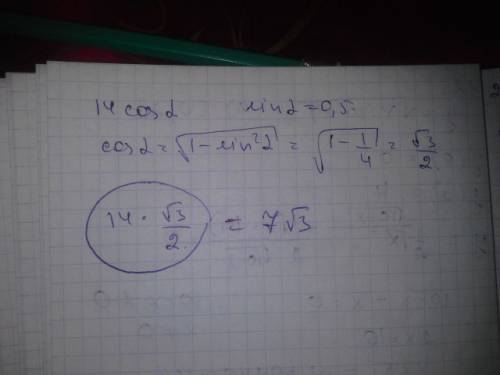 14 cos α sin α = 0,5
cos α = √(1 - sin² α) = √(1 - 1/4) = √3/2
14 · √3/2 = 7√3